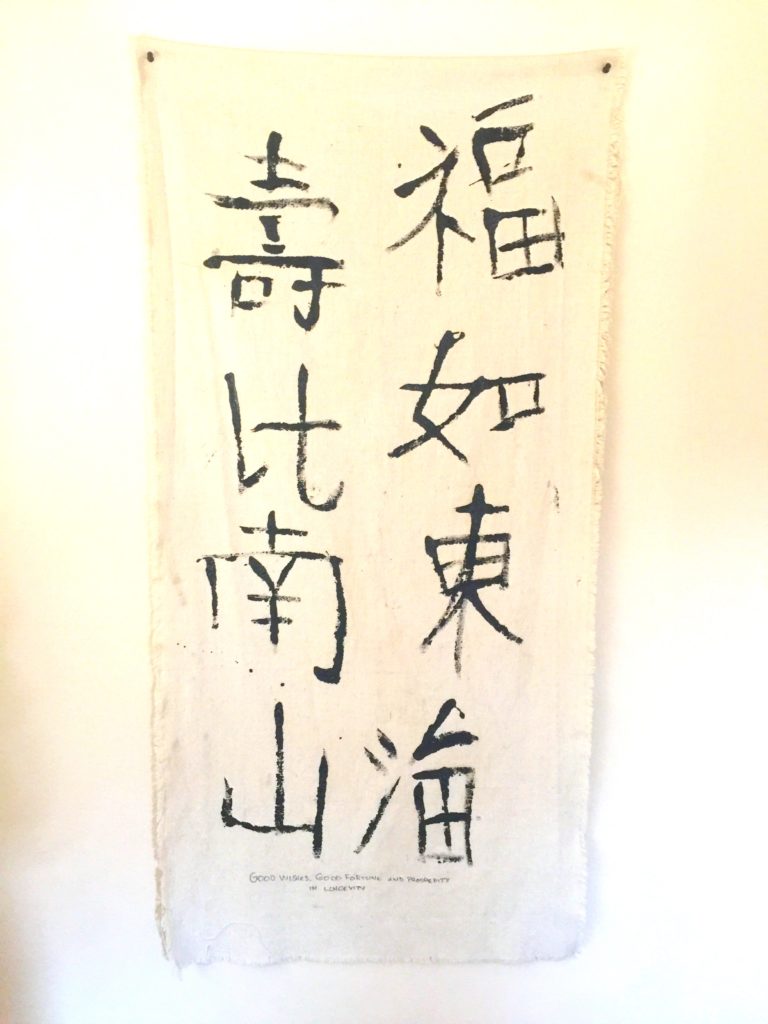 福如東海
壽比南山
GOOD WISHES, GOOD FORTUNE AND PROSPERITY
IN LONGEVITY